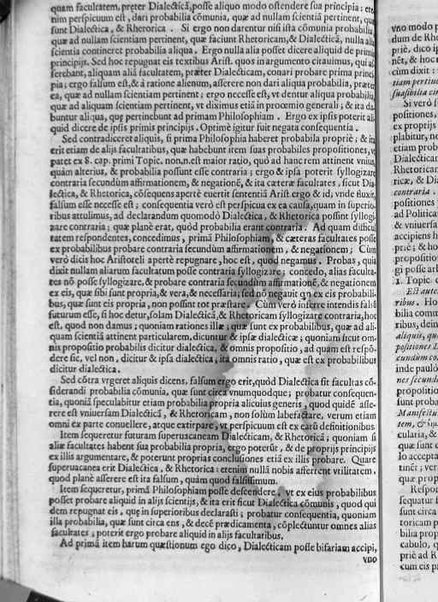 quam facultatem, preter Dialecticā, posse aliquo modo ostendere sua principia: ete
nim perspicuum est, dari probabilia cōmunia, quę ad nullam scientiam pertinent, quę
sunt Dialectica, & Rhetorica. Si ergo non darentur nisi ista cōmunia probabilia,
quæ ad nullam scientiam pertinent, quæ faciunt Rhetoricam, & Dialecticā, nulla alia
scientia contineret probabilia aliqua. Ergo nulla alia posset dicere aliquid de primis
principijs. Sed hoc repugnat eis textibus Arist. quos in argumento citauimus, qui as-
serebant, aliquam aliā facultatem, præter Dialecticam, conari probare prima princi-
pia; ergo falsum est, & à ratione alienum, asserere non dari aliqua probabilia, præter
ea, quæ ad nullam scientiam pertinent; ergo necesse est, vt dentur aliqua probabilia,
quæ ad aliquam scientiam pertinent, vt diximus etiā in proœmio generali; & ita da-
buntur aliqua, quę pertinebunt ad primam Philosophiam. Ergo ex ipsis poterit ali
quid dicere de ipsis primis principijs. Optimè igitur fuit negata consequentia.
Sed contradiceret aliquis, si prima Philosophia haberet probabilia propriè; & ita
erit etiam de alijs facultatibus, quæ habebunt item suas probabiles propositiones, vt
patet ex 8. cap. primi Topic. non.n.est maior ratio, quò ad hanc rem attinet vnius,
quàm alterius, & probabilia possunt esse contraria; ergo & ipsa poterit syllogizare
contraria secundum affirmationem, & negationē, & ita cæteræ facultates, sicut Dia-
lectica, & Rhetorica, cōsequens apertè euertit sententiā Arist. ergo & id, vnde fluxit,
falsum esse necesse est; consequentia verò est perspicua ex ea causa, quam in superio-
ribus attulimus, ad declarandum quomodò Dialectica, & Rhetorica possint syllogi-
zare contraria; quæ planè erat, quòd probabilia erant contraria. Ad quam difficul
tatem respondentes, concedimus, primā Philosophiam, & cæteras facultates posse
ex probabilibus probare contraria secundum affirmationem, & negationem; Cùm
verò dicis hoc Aristoteli apertè repugnare, hoc est, quod negamus. Probas, quia
dixit nullam aliarum facultatum posse contraria syllogizare; concedo, alias faculta-
tes nō posse syllogizare, & probare contraria secundūm affirmationē, & negationem
ex eis, quæ sibi sunt propria, & vera, & necessaria; sed nō negauit qn ex eis probabili
bus, quæ sunt eis propria, non possint tot præstare. Cùm verò infers intendis falsō
futurum esse, si hoc detur, solam Dialecticā, & Rhetoricam syllogizare contraria, hoc
est, quod non damus; quoniam rationes illæ, quæ sunt ex probabilibus, quæ ad ali-
quam scientiā attinent particularem, dicuntur & ipsæ dialecticæ; quoniam sicut om-
nis propositio probabilis dicitur dialectica, & omnis propositio, ad quam est respō-
dere sic, vel non, dicitur & ipsa dialectica, ita omnis ratio, quæ est ex probabilibus
dicitur dialectica.
Sed cōtra vrgeret aliquis dicens, falsum ergo erit, quòd Dialectica sit facultas cō-
siderandi probabilia cōmunia, quę sunt circa vnumquodque; probatur consequen-
tia, quoniā speculabitur etiam probabilia propria alicuius generis, quod quidē asse-
rere est vniuersam Dialecticā, & Rhetoricam, non solùm labefactare, verùm etiam
omni ex parte conuellere, atque extirpare; vt perspicuum est ex earū definitionibus.
Item sequeretur futuram superuacaneam Dialecticam, & Rhetoricā; quoniam si
aliæ facultates habent sua probabilia propria, ergo poterūt, & de proprijs principijs
ex illis argumentare, & poterunt proprias conclusiones etiā ex illis probare. Quare
superuacanea erit Dialectica, & Rhetorica: etenim nullā nobis afferent vtilitatem,
quod planè asserere est ita falsum, quàm quod falsissimum.
Item sequeretur, primā Philosophiam posse descendere, vt ex eius probabilibus
posset probare aliquid in alijs scientijs, & ita erit sicut Dialectica cōmunis, quod qui
dem repugnat eis, quę in superioribus declarasti; probatur consequentia, quoniam
illa probabilia, quæ sunt circa ens, & decē prædicamenta, cōplectuntur omnes alias
facultates, poterit ergo probare aliquid in alijs facultatibus.
Ad primā item harum quæstionum ego dico, Dialecticam posse bifariam accipi,
vno